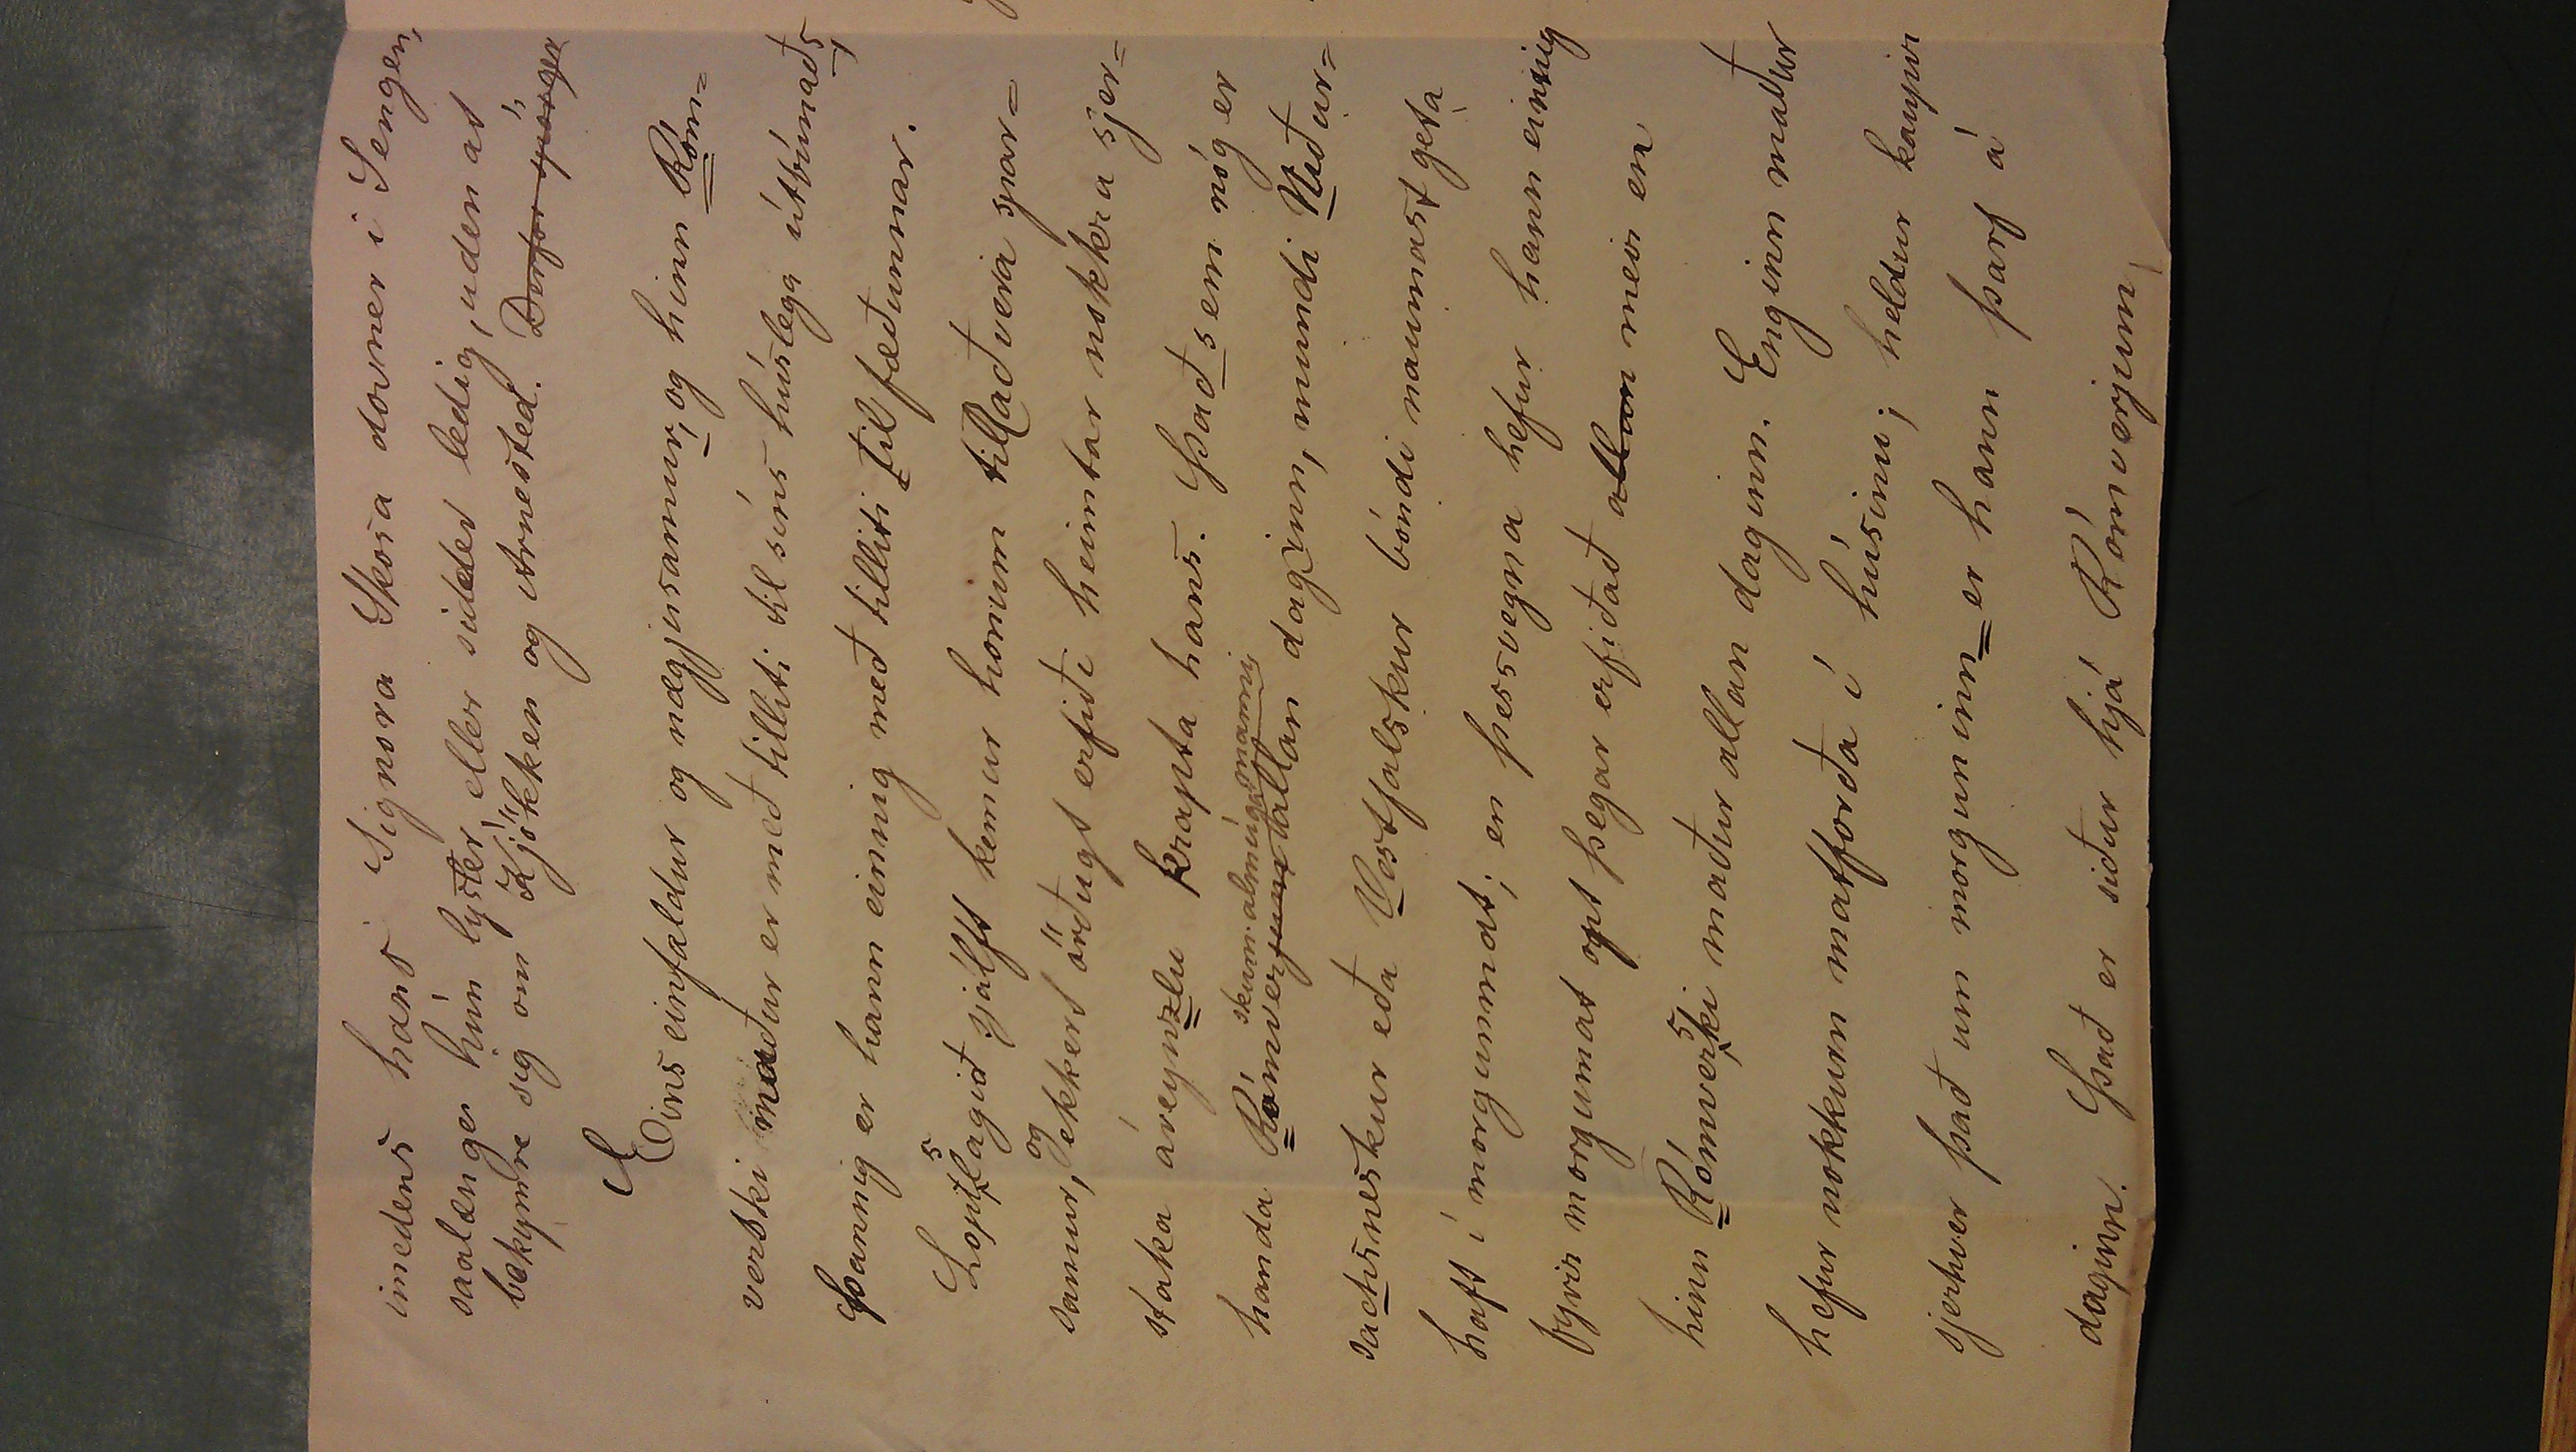 imedens hans Signora Skosa dovner i Sengen,
saalænge hún lyster, eller sidder ledig, uden at
bekymre sig om Kjökken og Arnested. Derfor spörger
Eins einfaldur og nægjusamur, og hinn Róm=
verski maður er með tilliti til síns húslega útbúnaðs,
Þannig er hann einnig með tilliti til fæðunnar.
Loptslagið sjálft kemur honum til að vera spar=
samur, og ekkert örðugt erfiði heimtar nokkra sjer=
staka áreynzlu krapta hans. Það sem nóg er
skum almúgamanni
handa Rómverjum allan daginn, mundi Neður=
sachsneskur eða Vestfalskur bóndi naumast geta
haft í morgunmat; en þessvegna hefur hann einnig
fyrir morgunmat opt þegar erfiðað allan meir en
hinn Rómverski maður allan daginn. Enginn maður
hefur nokkurn matforða í húsinu; heldur kaupir
sjerhver það um morguninn= er hann þarf á
daginn. Það er siður hjá Rómverjum